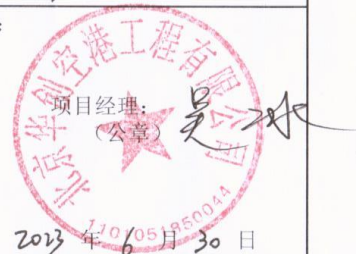 北京华创空港工程有限公司
项目经理：吴冰
（公章）
1101051850044
2023 年 6 月 30 日